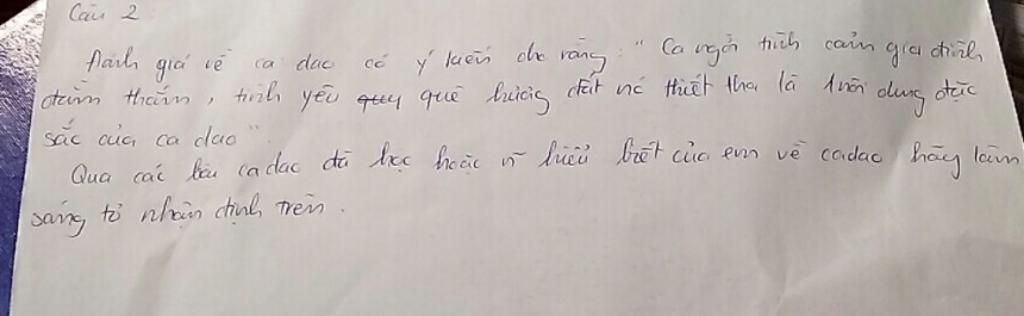 Câu 2
Đánh giá về ca dao có ý kiến cho rằng: "Ca ngợi tình cảm gia đình
đằm thắm, tình yêu quê hương đất nc thiết tha là 1 nội dung đặc
sắc của ca dao"
Qua các bài ca dao đã học hoặc = hiểu biết của em về ca dao hãy làm
sáng tỏ nhận định trên.